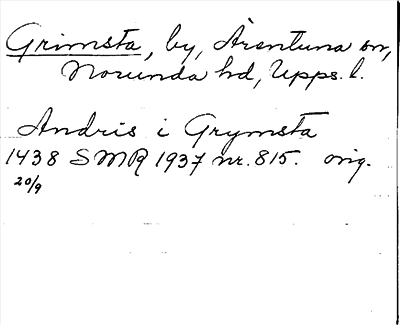 Grimsta, by, Ärentuna sn,
Norunda hd, Upps. l.
Andris i Grymsta
1438 SMR 1937 nr. 815. orig.
20/9